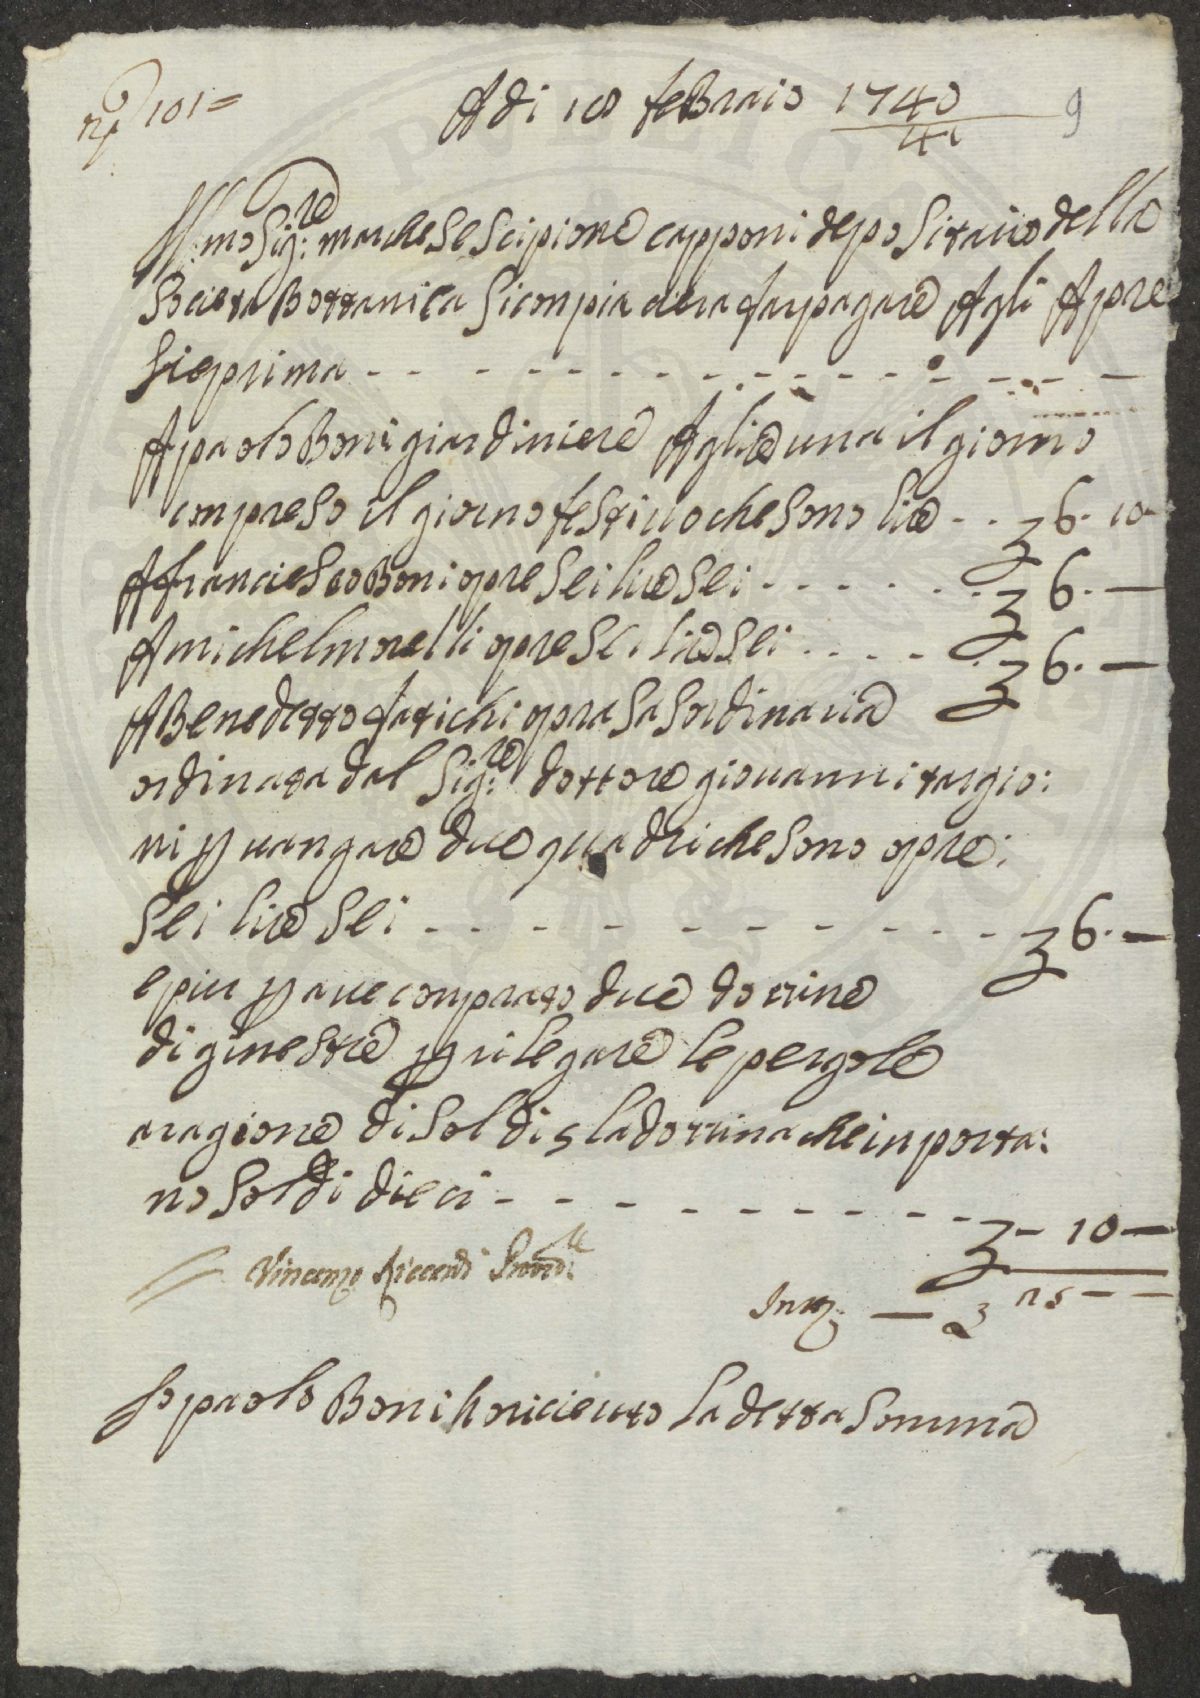 n° 101=
A di 18 feBraio 1740
41
9
Ill:mo Sig:re marchese Scipione capponi depositario della
Societa Bottanica Si conpiacera far pagare Agli Apre
Sie prima - - - - - - - - - - - - - -
A paolo Boni giardiniere A lire una il giorno
conpreso il giorno festiuo che sono lire - - 6. 10
A francesco Boni opre sei lire sei - - - - - 6. —
A michel morelli opre sei lire sei - - - - 6. —
A Benedetto fatichi opra sasordinaria
ordinata dal Sig:re dottore giouanni targio:
ni p uangare due quadri che sono opre:
Sei lire Sei - - - - - - - - - - - 6. —
e piu p aue conprato due dozzine
di ginestre p rilegare le pergole
a ragione di Soldi 5 la dozzina che inporta:
no Soldi dieci - - - - - - - - - - - 10 —
Vincenzo Riccardi Proued:re
In tt° — 25 — —
Io paolo Boni ho riceuuto la detta Somma